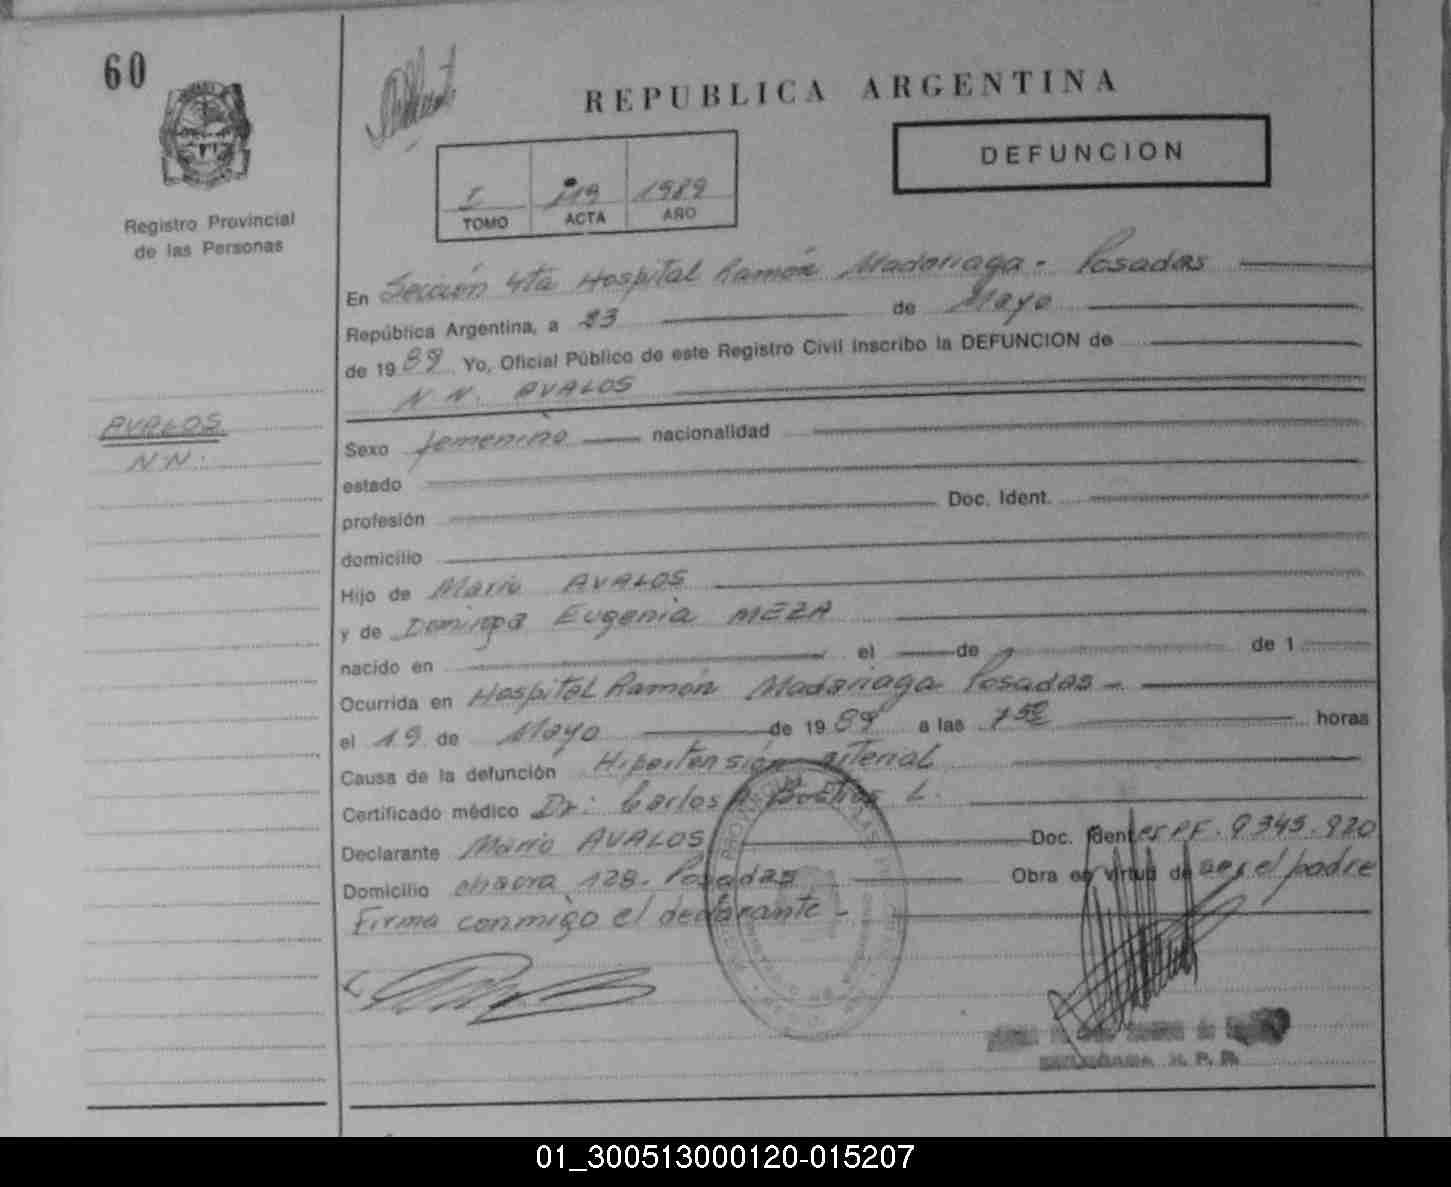 60
REPUBLICA ARGENTINA
DEFUNCION
I 119 1989
TOMO ACTA AÑO
Registro Provincial
de las Personas
En Sección 4ta Hospital Ramón Madariaga - Posadas
República Argentina, a 23 de Mayo
de 1989. Yo, Oficial Público de este Registro Civil inscribo la DEFUNCION de
N.N. AVALOS
AVALOS
N.N.
Sexo femenino nacionalidad
estado
profesión Doc. Ident.
domicilio
Hijo de Mario AVALOS
y de Dominga Eugenia MEZA
nacido en el de de 1
Ocurrida en Hospital Ramón Madariaga Posadas -
el 19 de Mayo de 1989 a las 7 50 horas
Causa de la defunción Hipertensión arterial
Certificado médico Dr: Carlos A. L.
Declarante Mario AVALOS Doc. Ident. PF. 9.345.920
Domicilio chacra 128. Posadas Obra en virtud de ser el padre
Firma conmigo el declarante -
01_300513000120-015207